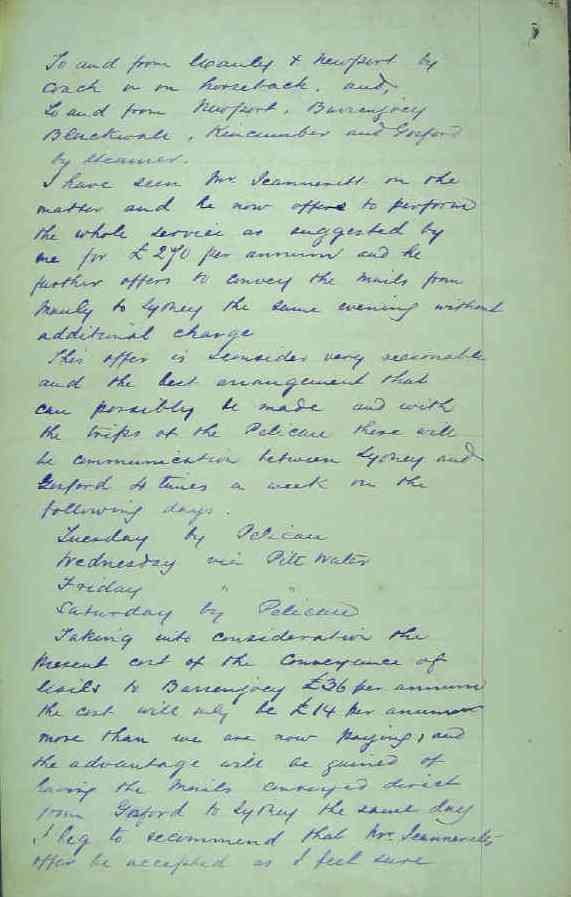 To and from Manly & Newport by
coach or on horseback. and,
to and from Newport, Barrenjoey
Blackwall, Kincumber and Gosford
by steamer.
I have seen Mr. Jeannerett on the
matter and he now offers to perform
the whole service as suggested by
me for £270 per annum and he
further offers to convey the mails from
Manly to Sydney the same evening without
additional charge
This offer is I consider very reasonable
and the best arrangement that
can possibly be made and with
the trips of the Pelican there will
be communication between Sydney and
Gosford 4 times a week on the
following days.
Tuesday by Pelican
Wednesday via Pitt Water
Friday " "
Saturday by Pelican
Taking into consideration the
present cost of the conveyance of
Mails to Barrenjoey £36 per annum
the cost will only be £14 per annum
more than we are now paying, and
the advantage will be gained of
having the Mails conveyed direct
from Gosford to Sydney the same day
I beg to recommend that Mr. Jeannerett's
offer be accepted as I feel sure